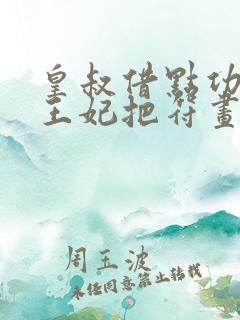 皇叔借點功
王妃把符畫
周玉波
未經同意禁止轉載